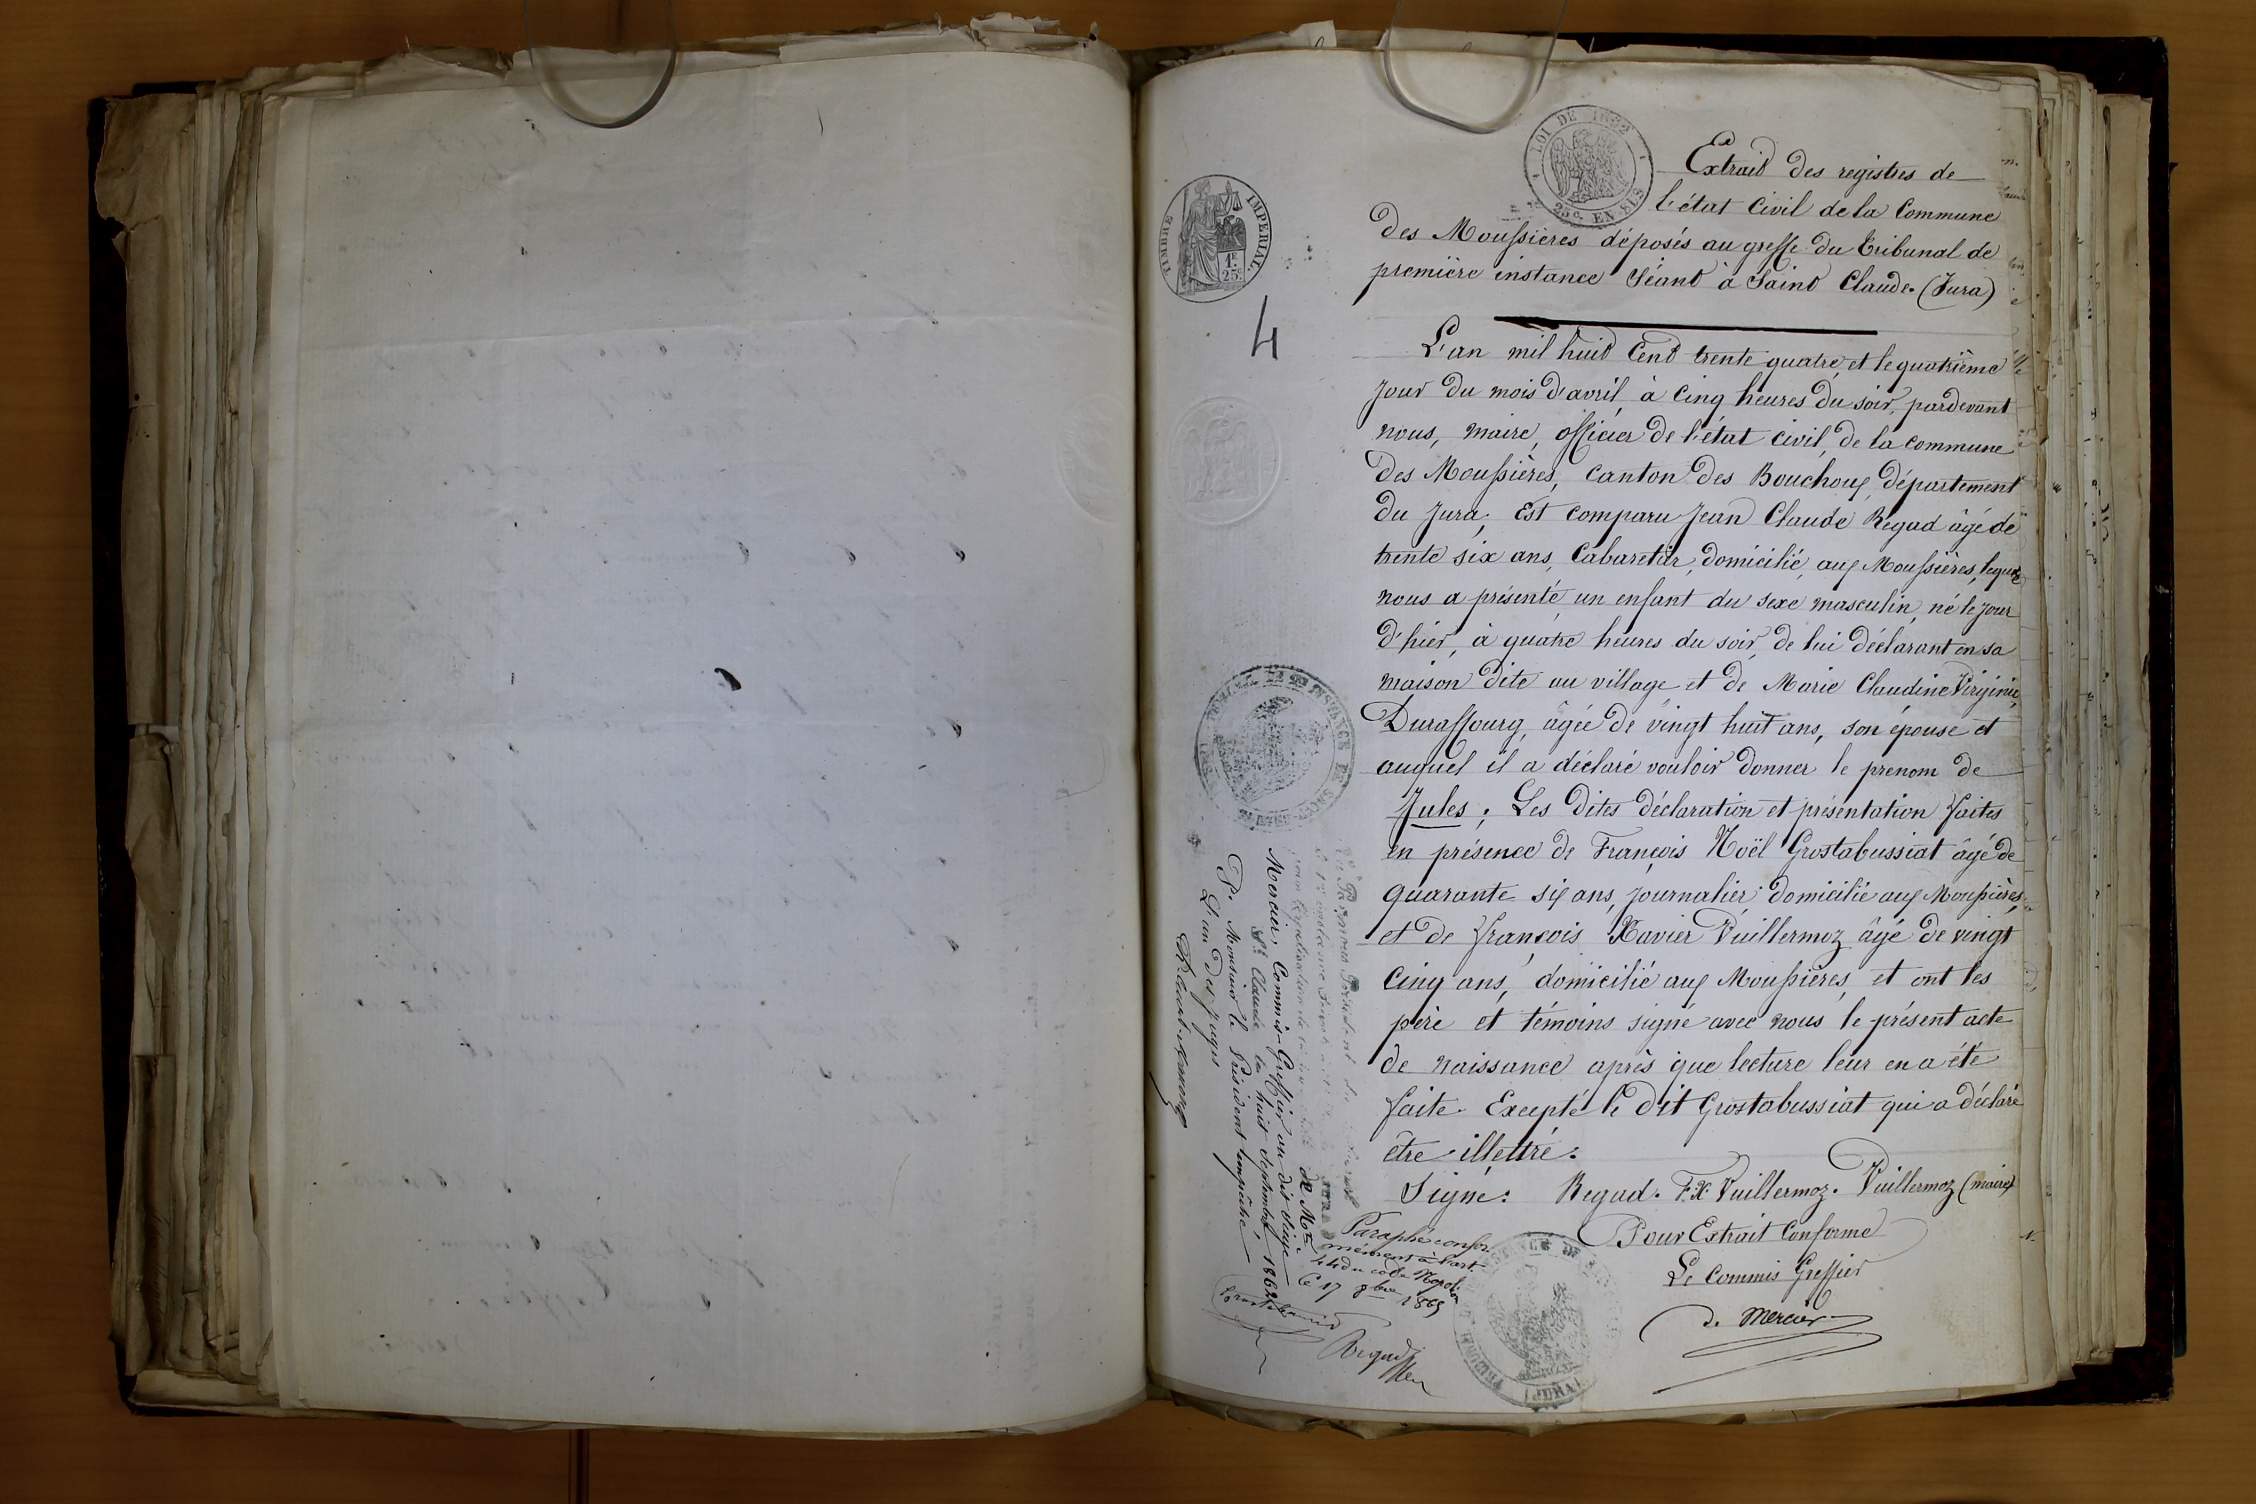 LOI DE 1862
25c. EN SUS
TIMBRE IMPERIAL
1f.
25c.
4
Extrait des registres de
l'état Civil de la Commune
des Moussières déposés au greffe du Tribunal de
première instance Séant à Saint Claude. (Jura)
L'an mil huit Cent trente quatre, et le quatrième
jour du mois d'avril, à Cinq heures du soir, pardevant
nous, maire, officier de l'état civil, de la commune
des Moussières, Canton des Bouchoux, département
du Jura; Est Comparu Jean Claude Regad âgé de
trente six ans, Cabaretier, domicilié, aux Moussières, lequel
nous a présenté un enfant du sexe masculin, né le jour
d'hier, à quatre heures du soir, de lui déclarant en sa
maison dite au village et de Marie Claudine Virginie,
Duraffourg, âgée de vingt huit ans, son épouse et
auquel il a déclaré vouloir donner le prenom de
Jules; Les dites déclaration et présentation faites
en présence de François Noël Grostabussiat âgé de
quarante six ans, journalier domicilié aux Moussières,
et de françois Xavier Vuillermoz âgé de vingt
Cinq ans, domicilié aux Moussières, et ont les
père et témoins signé avec nous le présent acte
de naissance après que lecture leur en a été
faite. Excepté le dit Grostabussiat qui a déclaré
être illettré.
Signé: Regad. F.X. Vuillermoz. Vuillermoz (maire)
Pour Extrait Conforme
Le Commis Greffier
d. Mercier
de Mtre
Mercier, Commis-Greffier au dit siège
St. Claude le huit Septembre 1862
P. Monsieur le Président empêché,
L'un des juges
Paraphé confor
mément à l'art.
44 du code Napoléon
Le 17 8bre 1865
Regad
(JURA)